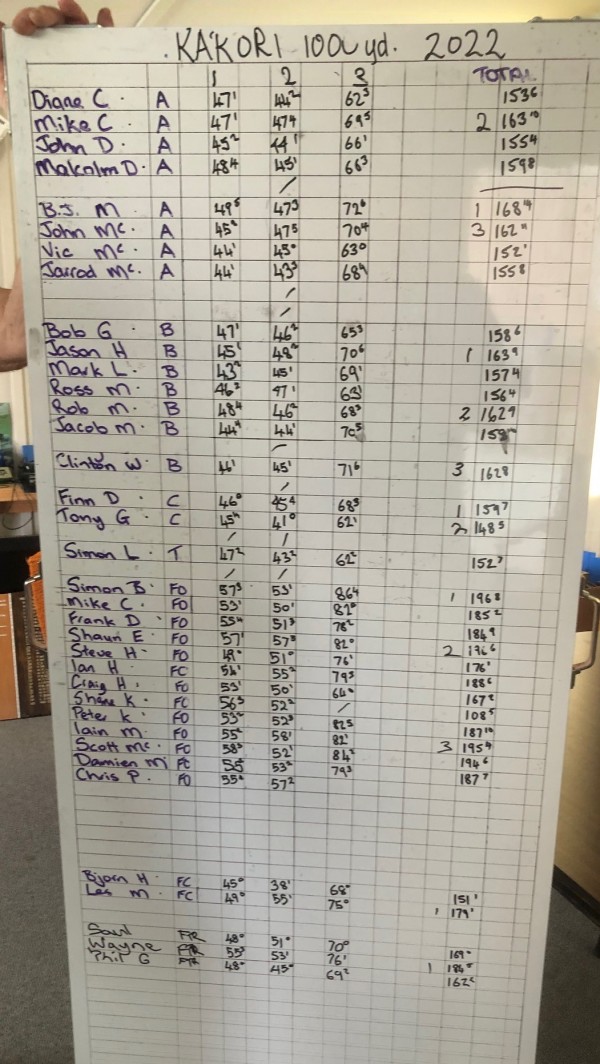 KA'KORI 1000 yd. 2022
1 2 3 TOTAL
Diane C. A 47¹ 44² 62³ 153⁶
Mike C. A 47¹ 47⁴ 69⁵ 2 163¹⁰
John D. A 45² 44¹ 66¹ 155⁴
Malcolm D. A 48⁴ 45¹ 66³ 159⁸
B.J. M A 49⁵ 47³ 72⁶ 1 168¹⁴
John Mc. A 45² 47⁵ 70⁴ 3 162¹¹
Vic Mc. A 44¹ 45⁰ 63⁰ 152¹
Jarrod Mc. A 44¹ 43³ 68⁴ 155⁸
Bob G. B 47¹ 46² 65³ 158⁶
Jason H B 45¹ 48² 70⁶ 1 163⁹
Mark L. B 43² 45¹ 69¹ 157⁴
Ross M. B 46² 47¹ 63¹ 156⁴
Rob M. B 48⁴ 46² 68³ 2 162⁹
Jacob M. B 44⁴ 44¹ 70⁵
Clinton W. B 46¹ 45¹ 71⁶ 3 162⁸
Finn D. C 46⁰ 45⁴ 68³ 1 159⁷
Tony G. C 45⁴ 41⁰ 62¹ 2 148⁵
Simon L. T 47² 43² 62² 152⁷
Simon B. FO 57³ 53¹ 86⁴ 1 196⁸
Mike C. FO 53¹ 50¹ 82⁰ 185²
Frank D. FO 55⁴ 51³ 78² 184⁹
Shaun E. FO 57¹ 57³ 82⁰ 2 196⁶
Steve H. FO 49⁰ 51⁰ 76¹ 176¹
Ian H. FC 54¹ 55² 79³ 188⁶
Craig H. FO 53¹ 50¹ 64⁰ 167²
Shane K. FC 56³ 52² / 108⁵
Peter K. FO 53² 52³ 82⁵ 187¹⁰
Iain M. FO 55² 58¹ 82¹ 3 195⁴
Scott Mc. FO 58³ 52¹ 84² 194⁶
Damien M FC 55 53² 79³ 187⁷
Chris P. FO 55⁰ 57²
Bjorn H. FC 45⁰ 38¹ 68⁰ 151¹
Les M. FC 49⁰ 55¹ 75⁰ 1 179¹
Saul FTR 48⁰ 51⁰ 70⁰ 169⁰
Wayne FTR 55³ 53¹ 76¹ 1 184⁵
Phil G FTR 48⁰ 45⁰ 69²